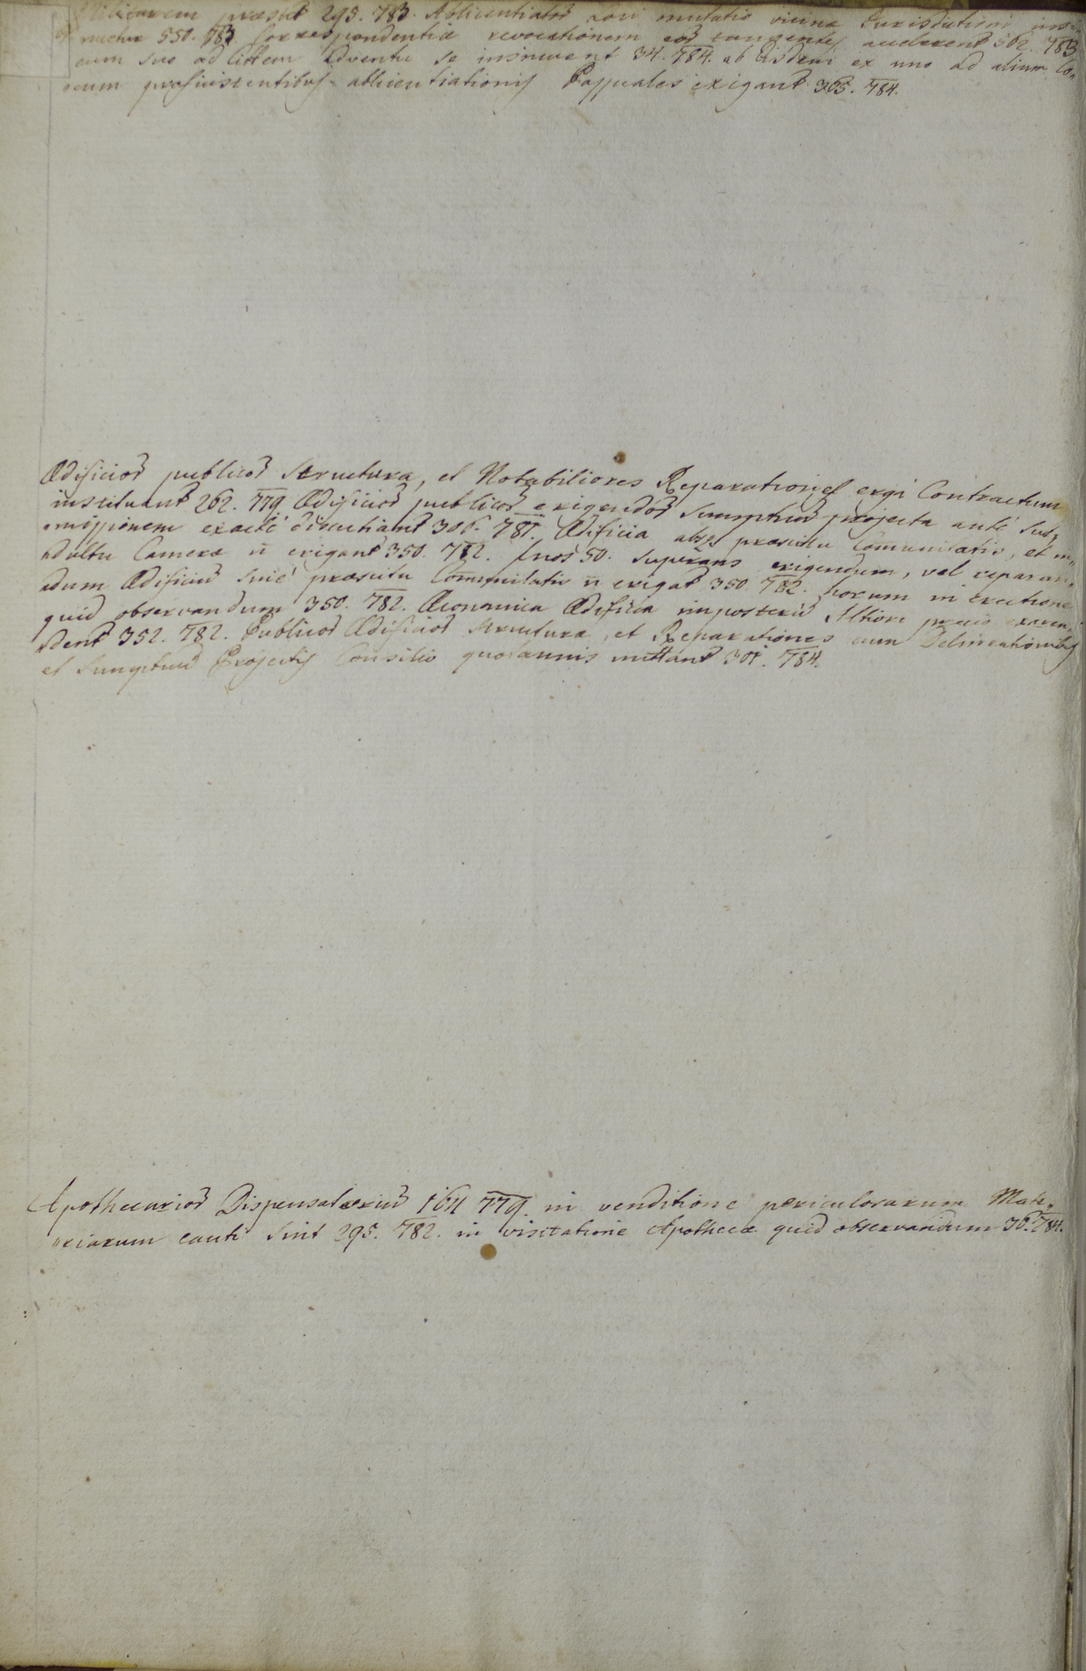 præstet 295. 783. Ablicentiator̃ loci mutatio vicinæ Jurisdictioni insi-
nuetur 550. 783 Correspondentiæ revocationem eor̃ tangentes accelerent 562. 783
cum suo ad Cittem Adventu se insinuent 34. 784. ab Eisdem ex uno ad alium Lo-
cum proficiscentibus ablicentiationis Passuales exigant 365. 784.
Ædificior̃ publicor̃ Structura, et Notabiliores Reparationes ergi Contractum
instituant 262. 779. Ædificior̃ publicor̃ erigendor̃ Sumptuũ projecta ante Sub-
missionem exacte discutiant 306. 781. Ædificia absq præscitu Communitatis, et in-
dultu Cameræ ñ erigant 350. 782. fnos 50. superans erigendum, vel reparan-
dum Ædificiũ sine præscitu Communitatis ñ erigat 350. 782. horum in Erectione
quid observandum 350. 782. Œconomica Ædificia imposterũ Altiori precio
dent 352. 782. Publicor̃ Ædificior̃ structuræ, et Reparationes cum Delineationibus
et Sumptuũ Projectis Consilio quotannis mittant 301. 784.
Apothecarior̃ Dispensatoriũ 164 779. in venditione periculosarum Mate-
riarum cauti sint 295. 782. in visitatione Apothecæ quid observandum 36. 784.